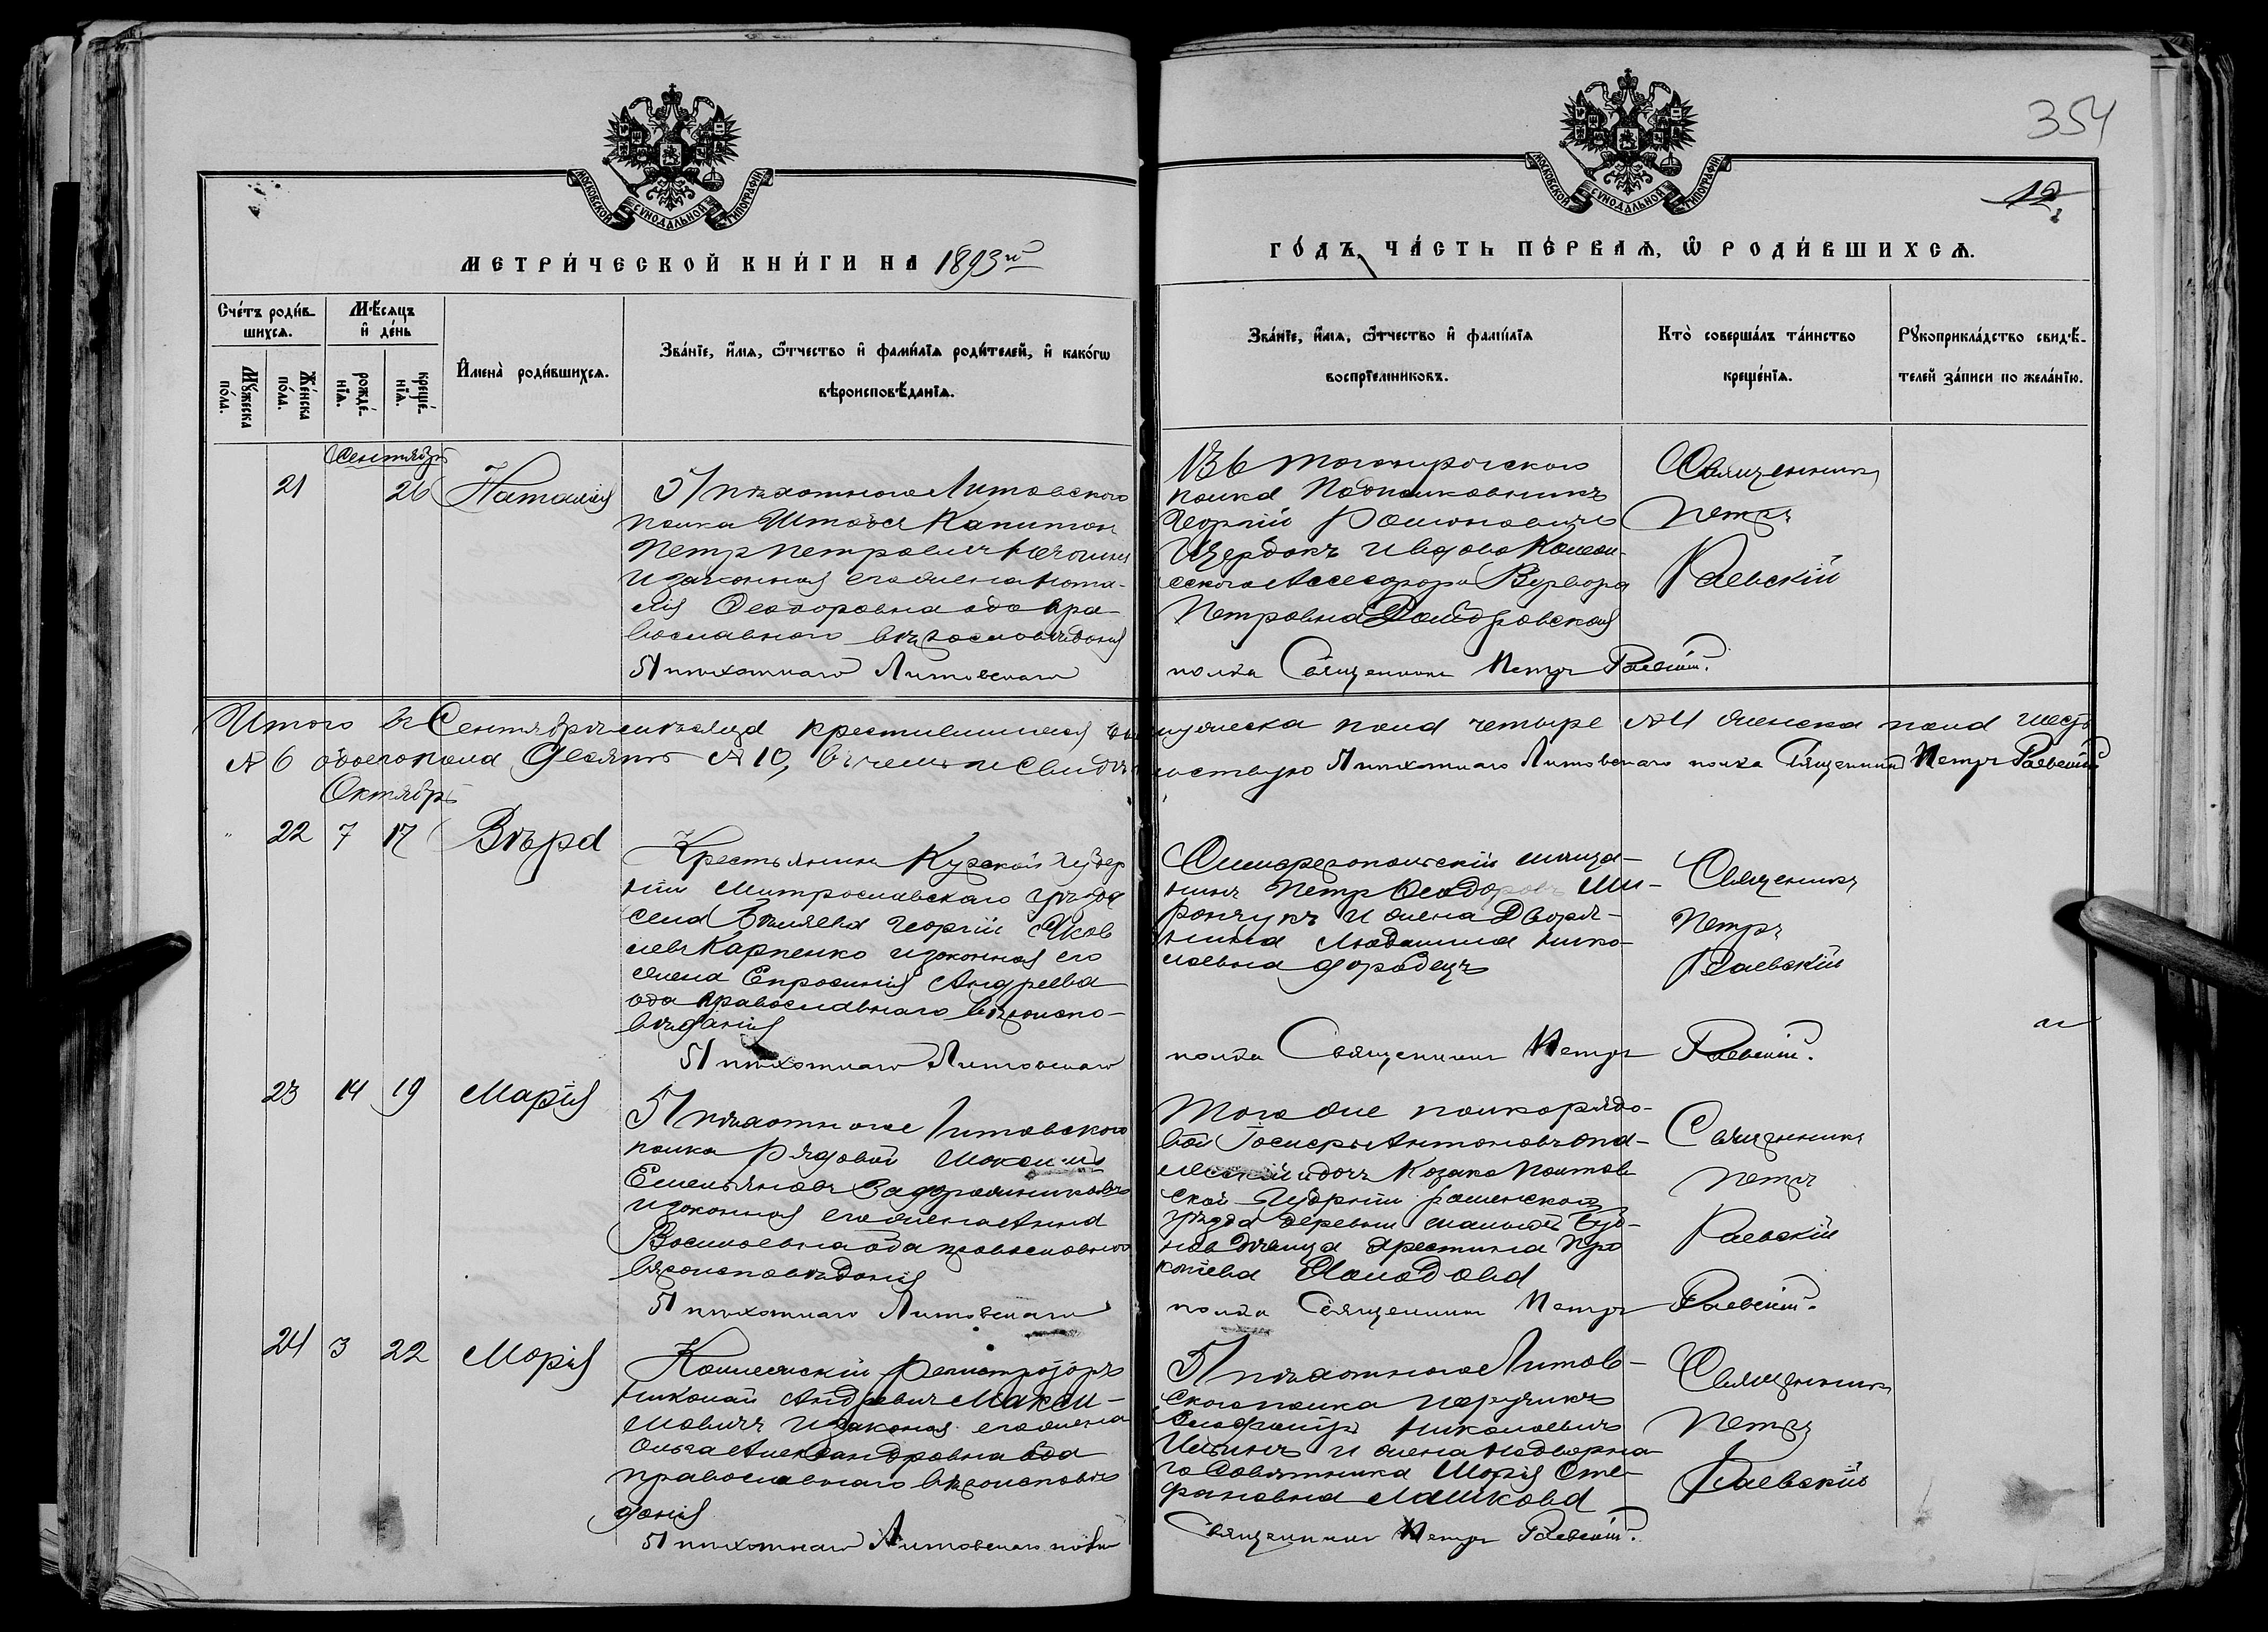 354
12
МОСКОВСКОЙ СѴНОДАЛЬНОЙ ТИПОГРАФІИ
МОСКОВСКОЙ СѴНОДАЛЬНОЙ ТИПОГРАФІИ
МЕТРИ́ЧЕСКОЙ КНИ́ГИ НА 1893й
ГО́ДЪ, ЧА́СТЬ ПЕ́РВАЯ, Ѽ РОДИ́ВШИХСЯ.
Сче́тъ роди́в-
шихся.
Мѣ́сяцъ
и҆ де́нь
Мꙋ́жеска
по́ла.
Же́нска
по́ла.
рожде́-
нїя.
креще́-
нїя.
И҆мена̀ роди́вшихся.
Зва́нїе, и҆́мя, ѻ҆́тчество и҆ фами́лїя роди́телей, и҆ како́гѡ
вѣроисповѣ́данїя.
Зва́нїе, и҆́мя, ѻ҆́тчество и҆ фами́лїя
воспрїе́мниковъ.
Кто̀ соверша́лъ та́инство
креще́нїя.
Рꙋкоприкла́дство свидѣ́-
телей за́писи по жела́нїю.
Сентябрь
21 26 Наталія
51 пѣхотного Литовского
полка Штабсъ Капитан
Петр Петрович
и законная его жена Ната-
лія Феодоровна оба пра-
вославного вѣроисповѣданія
51 пѣхотнаго Литовскаго
136 Таганрогского
полка Подполковникъ
Георгій
и вдова Коллеж-
ского Ассесора Варвара
Петровна
полка Священникъ Петръ Раевскій.
Священникъ
Петръ
Раевскій
Итого въ Сентябрѣ мѣсяцѣ крестившихся мужеска пола четыре №4 женска пола шесть
№6 обоего пола десять №10, въ чемъ и свидѣтельствую 51 пѣхотнаго Литовскаго полка Священникъ Петръ Раевскій
Октябрь
22 7 17 Вѣра
Крестьянин Курской Губер
ніи уѣзда
села Георгій Яков
левъ Карпенко и законная его
жена Ефросинія Андреева
оба православнаго вѣроиспо-
вѣданія
51 пѣхотнаго Литовскаго
Симферопольскій мѣща-
нинъ Петр Феодоровъ Ми-
рончукъ и жена Дворя-
нина Людмила Нико-
лаевна
полка Священникъ Петръ Раевскій.
Священникъ
Петръ
Раевскій
23 14 19 Марія
51 пѣхотного Литовского
полка рядовой Максимъ
Емельяновъ
и законная его жена Анна
Васильевна оба православного
вѣроисповѣданія
51 пѣхотнаго Литовскаго
Того же полка рядо-
вой Антоновъ
и дочь Козака Полтав
ской Губерніи
уѣзда деревни
дѣвица Христина Про
копіева
полка Священникъ Петръ Раевскій.
Священникъ
Петръ
Раевскій
24 3 22 Марія
Коллежскій регистраторъ
Николай Андреевич Макси-
мовичъ и законая его жена
Ольга Александровна оба
православнаго вѣроисповѣ
данія
51 пѣхотнаго Литовскаго полка
51 пѣхотного Литов-
ского полка поручикъ
Владиміръ Николаевичъ
Ильинъ и жена Надворна-
го Совѣтника Марія Сте-
фановна Машкова
Священникъ Петръ Раевскій.
Священникъ
Петръ
Раевскій